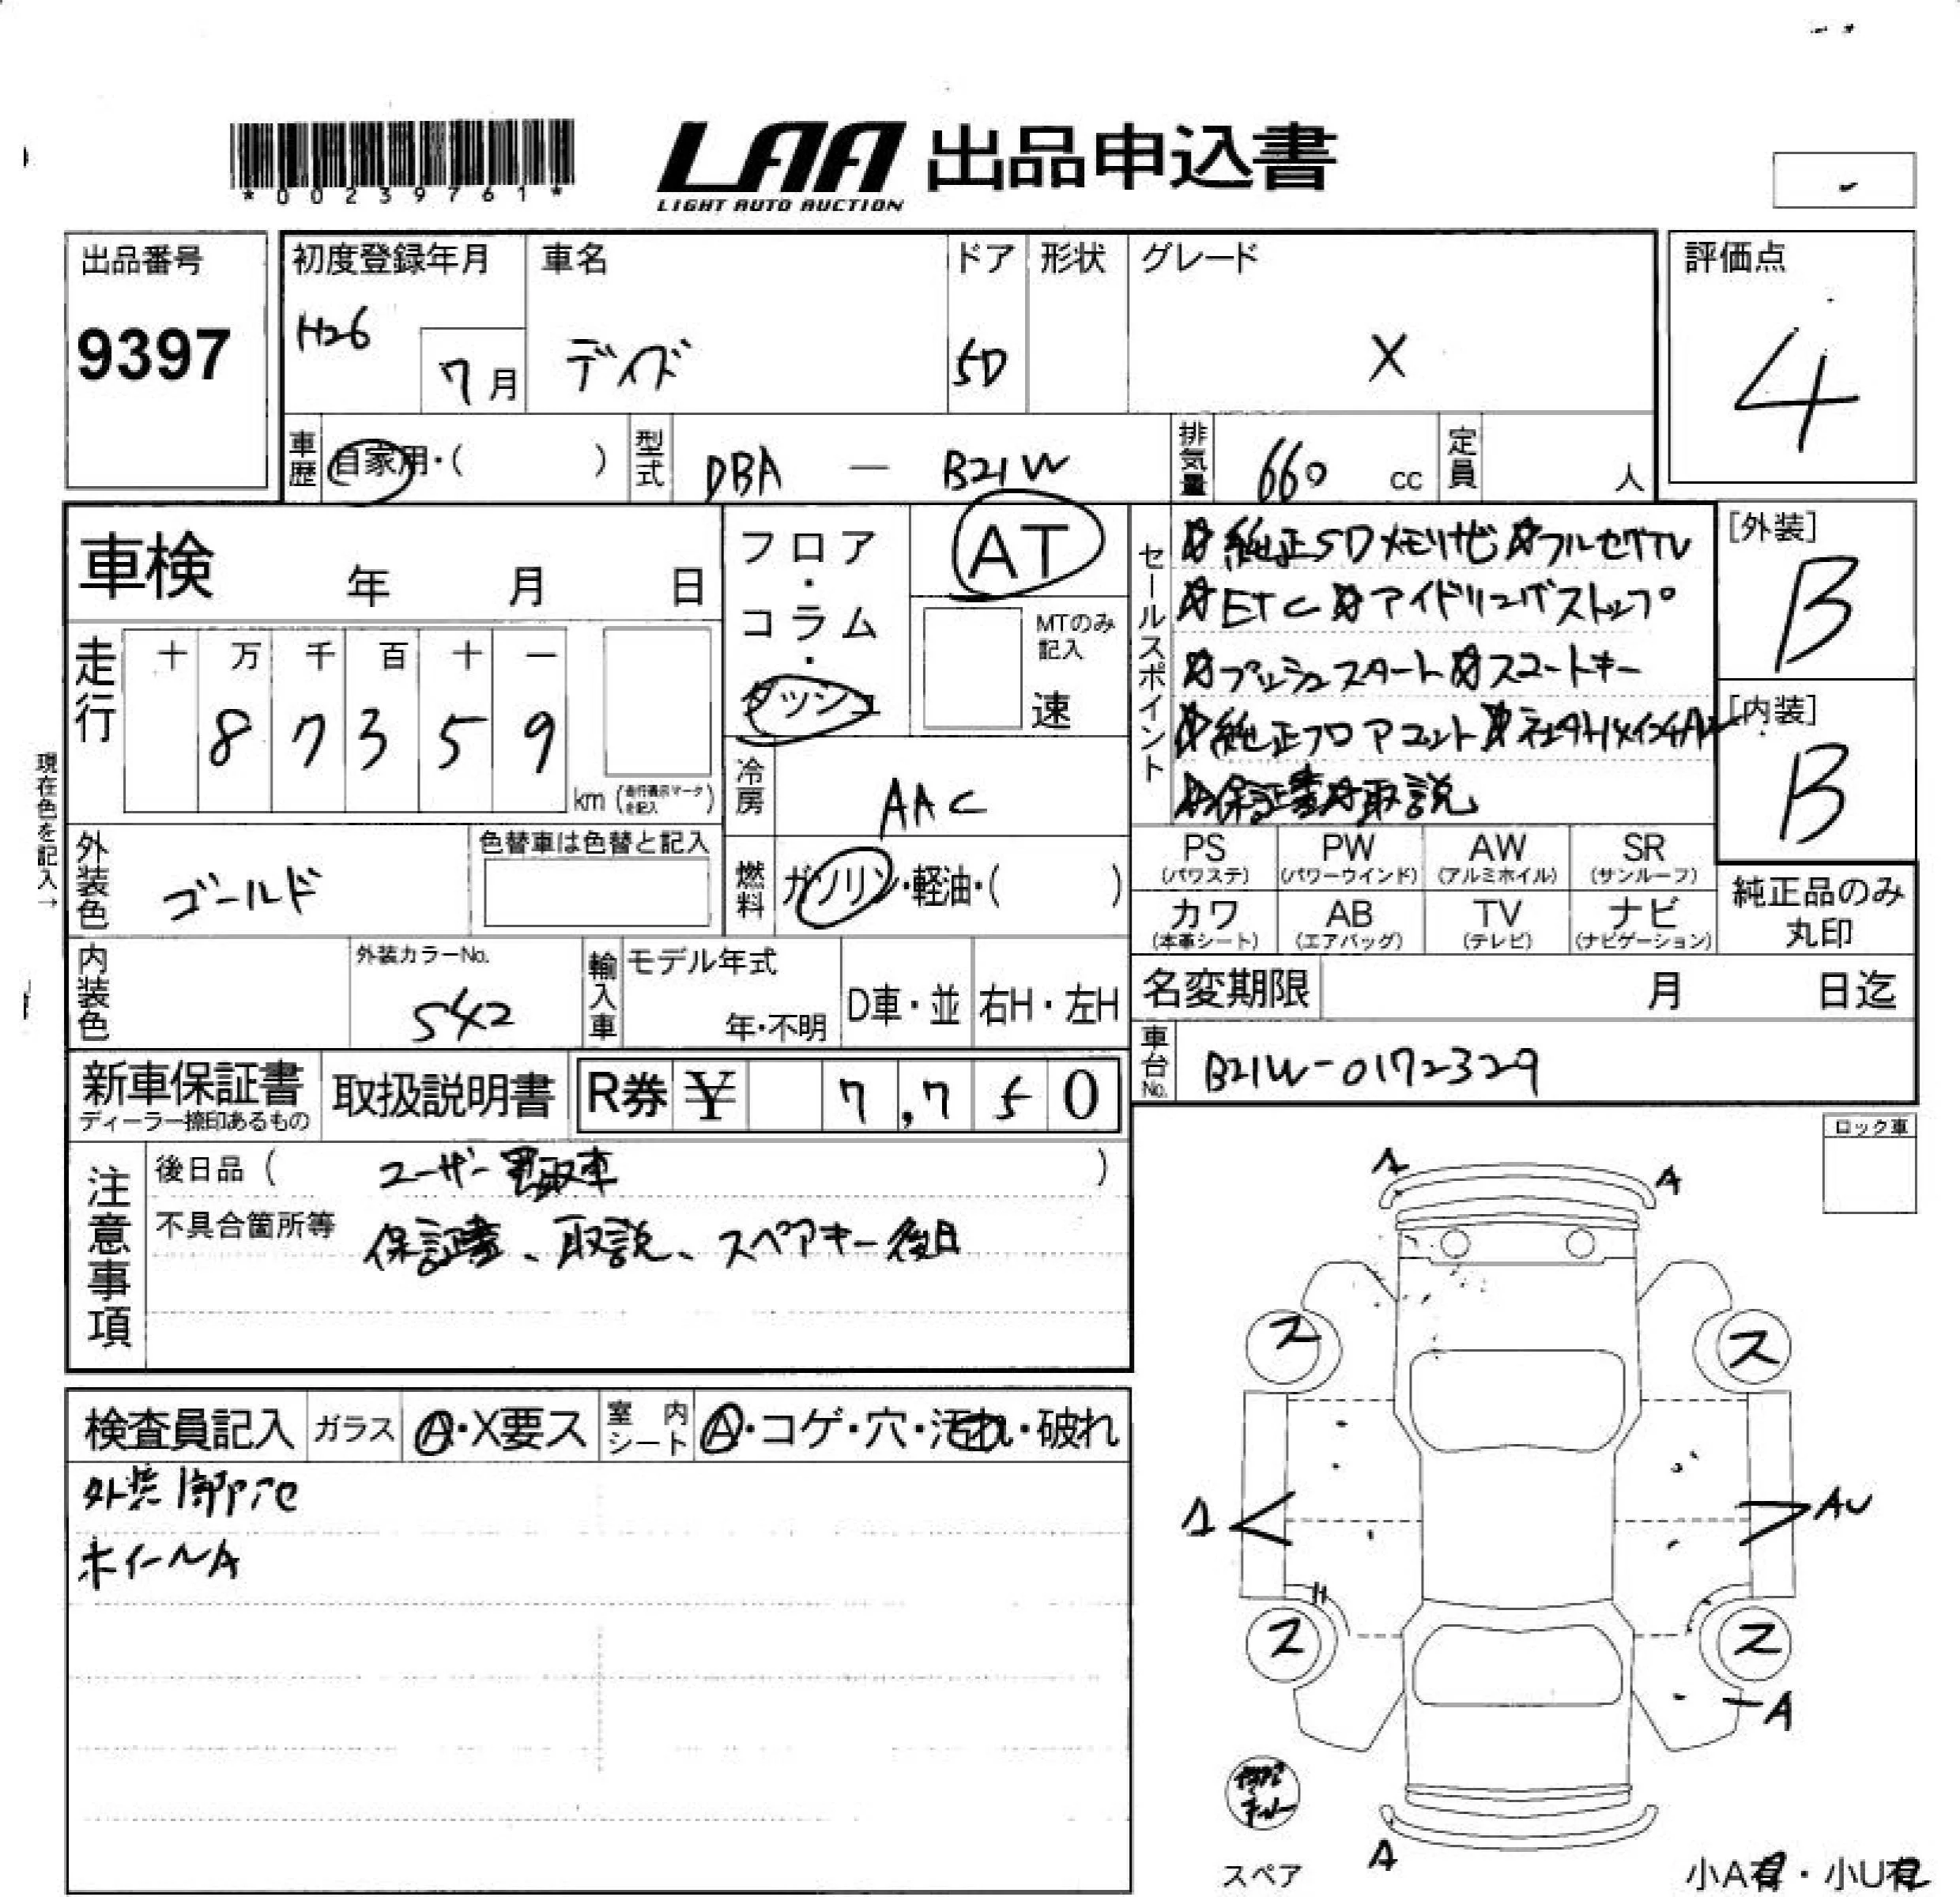 *00239761*
LAA 出品申込書
LIGHT AUTO AUCTION
出品番号
9397
初度登録年月
H26
7月
車名
デイズ
ドア
5D
形状
グレード
X
評価点
4
車歴 自家用・( )
型式 DBA - B21W
排気量 660 cc
定員 人
車検 年 月 日
フロア・コラム・ダッシュ
AT
MTのみ記入
速
セールスポイント
☆純正SDメモリナビ ☆フルセグTV
☆ETC ☆アイドリングストップ
☆プッシュスタート ☆スマートキー
☆純正フロアマット
☆保証書☆取説
[外装]
B
[内装]
B
走行
十 万 千 百 十 一
8 7 3 5 9
km (走行表示マークを記入)
現在色を記入→
冷房 AAC
外装色 ゴールド
色替車は色替と記入
燃料 ガソリン・軽油・( )
PS (パワステ)
PW (パワーウインド)
AW (アルミホイル)
SR (サンルーフ)
カワ (本革シート)
AB (エアバッグ)
TV (テレビ)
ナビ (ナビゲーション)
純正品のみ丸印
内装色
外装カラーNo.
S42
輸入車
モデル年式
年・不明
D車・並
右H・左H
名変期限 月 日迄
車台No. B21W-0172329
新車保証書
ディーラー捺印あるもの
取扱説明書
R券 ¥ 7,750
注意事項
後日品 ( ユーザー買取車 )
不具合箇所等 保証書、取説、スペアキー後日
ロック車
検査員記入
ガラス A・X要ス
室内シート A・コゲ・穴・汚れ・破れ
ホイールA
A
A
ス
ス
AU
ス
ス
A
A
スペア
小A有・小U有